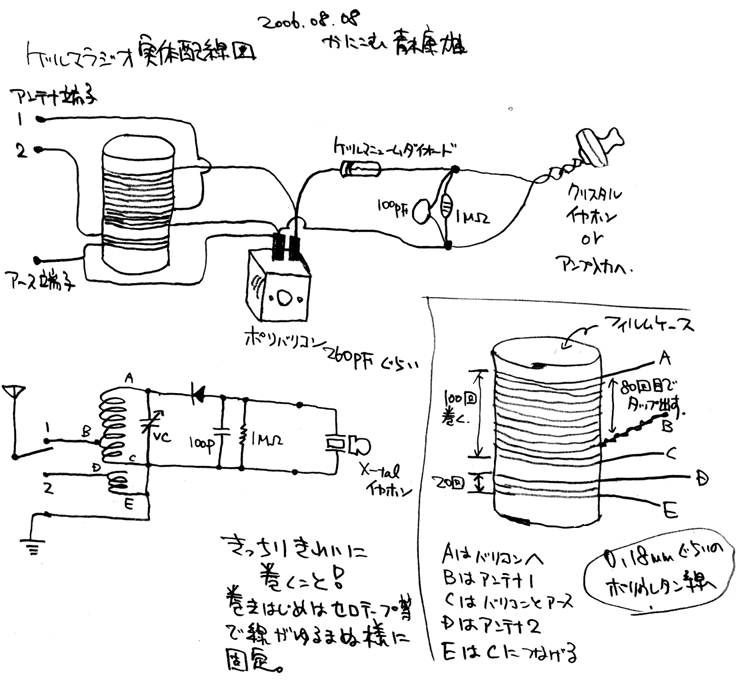 2006.08.08
ゲルマラジオ実体配線図
アンテナ端子
1
2
アース端子
ゲルマニュームダイオード
100pF
1MΩ
クリスタル
イヤホン
or
アンプ入力へ
ポリバリコン
260pFぐらい
フィルムケース
100回
巻く.
80回目で
タップ出す.
A
B
C
D
E
20回
A
B
C
D
E
1
2
VC
100p
1MΩ
X-tal
イヤホン
きっちりきれいに
巻くこと!
巻きはじめはセロテープ等
で線がゆるまぬ様に
固定。
Aはバリコンへ
Bはアンテナ1
CはバリコンとアースI
Dはアンテナ2
EはCにつなげる
0.18mmぐらいの
ポリウレタン線